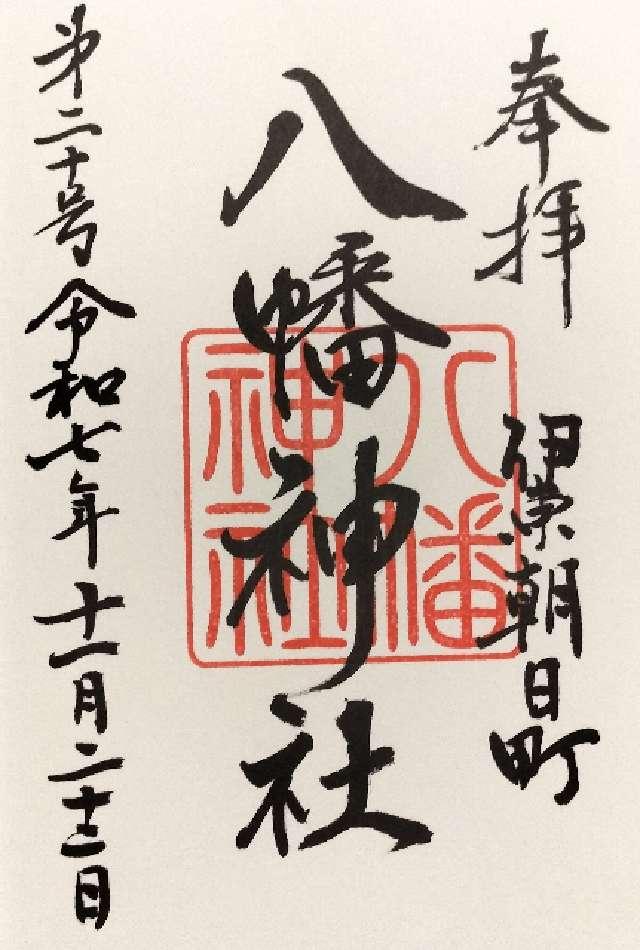 奉拝
朝日町
八幡神社
八幡
神社
第二十号 令和七年十一月二十三日